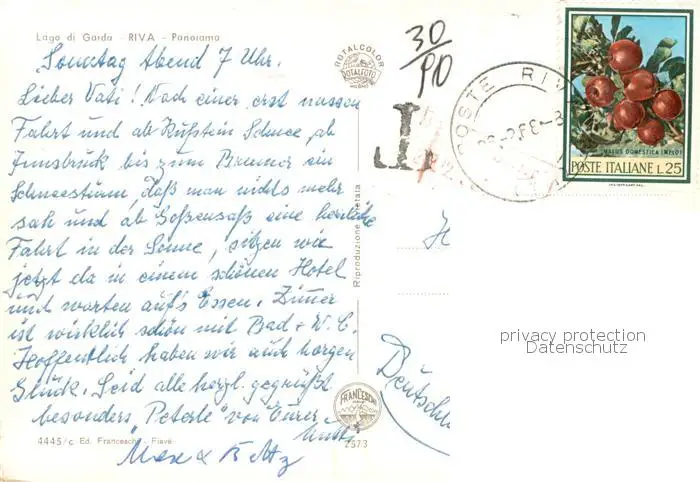 Lago di Garda - RIVA - Panorama
Sonntag Abend 7 Uhr.
Lieber Vati! Nach einer erst nassen
Fahrt und ab Kufstein Schnee, ab
Innsbruck bis zum Brenner ein
Schneesturm, daß man nichts mehr
sah und ab Goßensaß eine herrliche
Fahrt in der Sonne, sitzen wir
jetzt da in einem schönen Hotel
und warten auf's Essen. Zimmer
ist wirklich schön mit Bad + W.C.
Hoffentlich haben wir auch morgen
Glück. Seid alle herzl. gegrüßt
besonders "Peterle" von Eurer
Mutti
Max &
4445/c Ed. Franceschi - Fiavé
ROTALCOLOR
ROTALFOTO
MILANO
Riproduzione vietata
FRANCESCHI
2573
30/90
T
POSTE RIVA
MALUS DOMESTICA (MELO)
POSTE ITALIANE L.25
Deutschl
privacy protection
Datenschutz